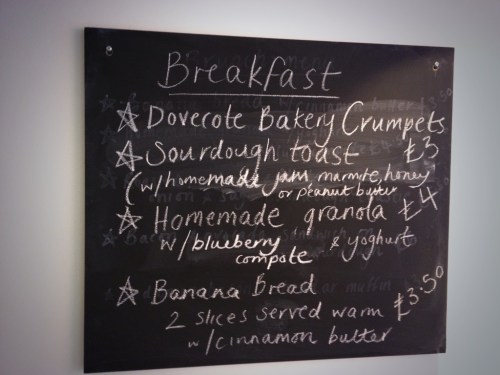 Breakfast
☆ Dovecote Bakery Crumpets
☆ Sourdough toast £3
(w/homemade jam marmite, honey
or peanut butter
☆ Homemade granola £4
w/blueberry & yoghurt
compote
☆ Banana Bread
2 slices served warm £3.50
w/cinnamon butter